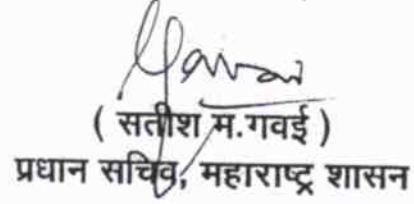 ( सतीश म.गवई )
प्रधान सचिव, महाराष्ट्र शासन